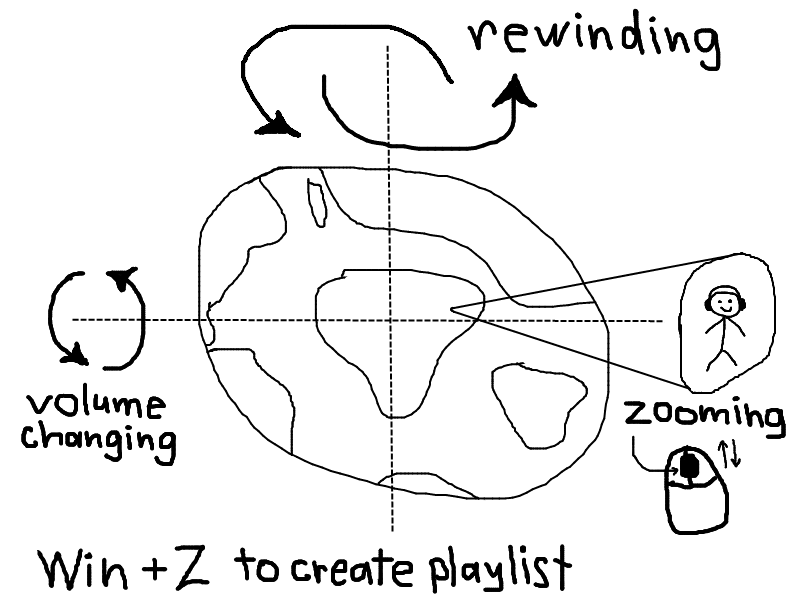 rewinding
volume
changing
zooming
Win + Z to create playlist